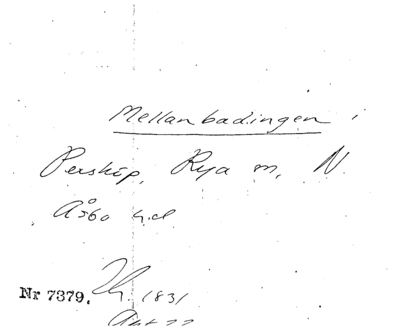 Mellanbadingen
Perstorp, Rya m, N.
Åsbo hd
Nr 7379. 1831